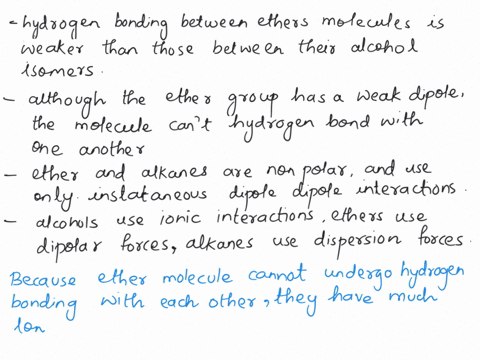 - hydrogen bonding between ethers molecules is
weaker than those between their alcohol
isomers.
- although the ether group has a weak dipole,
the molecule can't hydrogen bond with
one another
- ether and alkanes are non polar, and use
only instataneous dipole dipole interactions.
- alcohols use ionic interactions, ethers use
dipolar forces, alkanes use dispersion forces.
Because ether molecule cannot undergo hydrogen
bonding with each other, they have much
lon